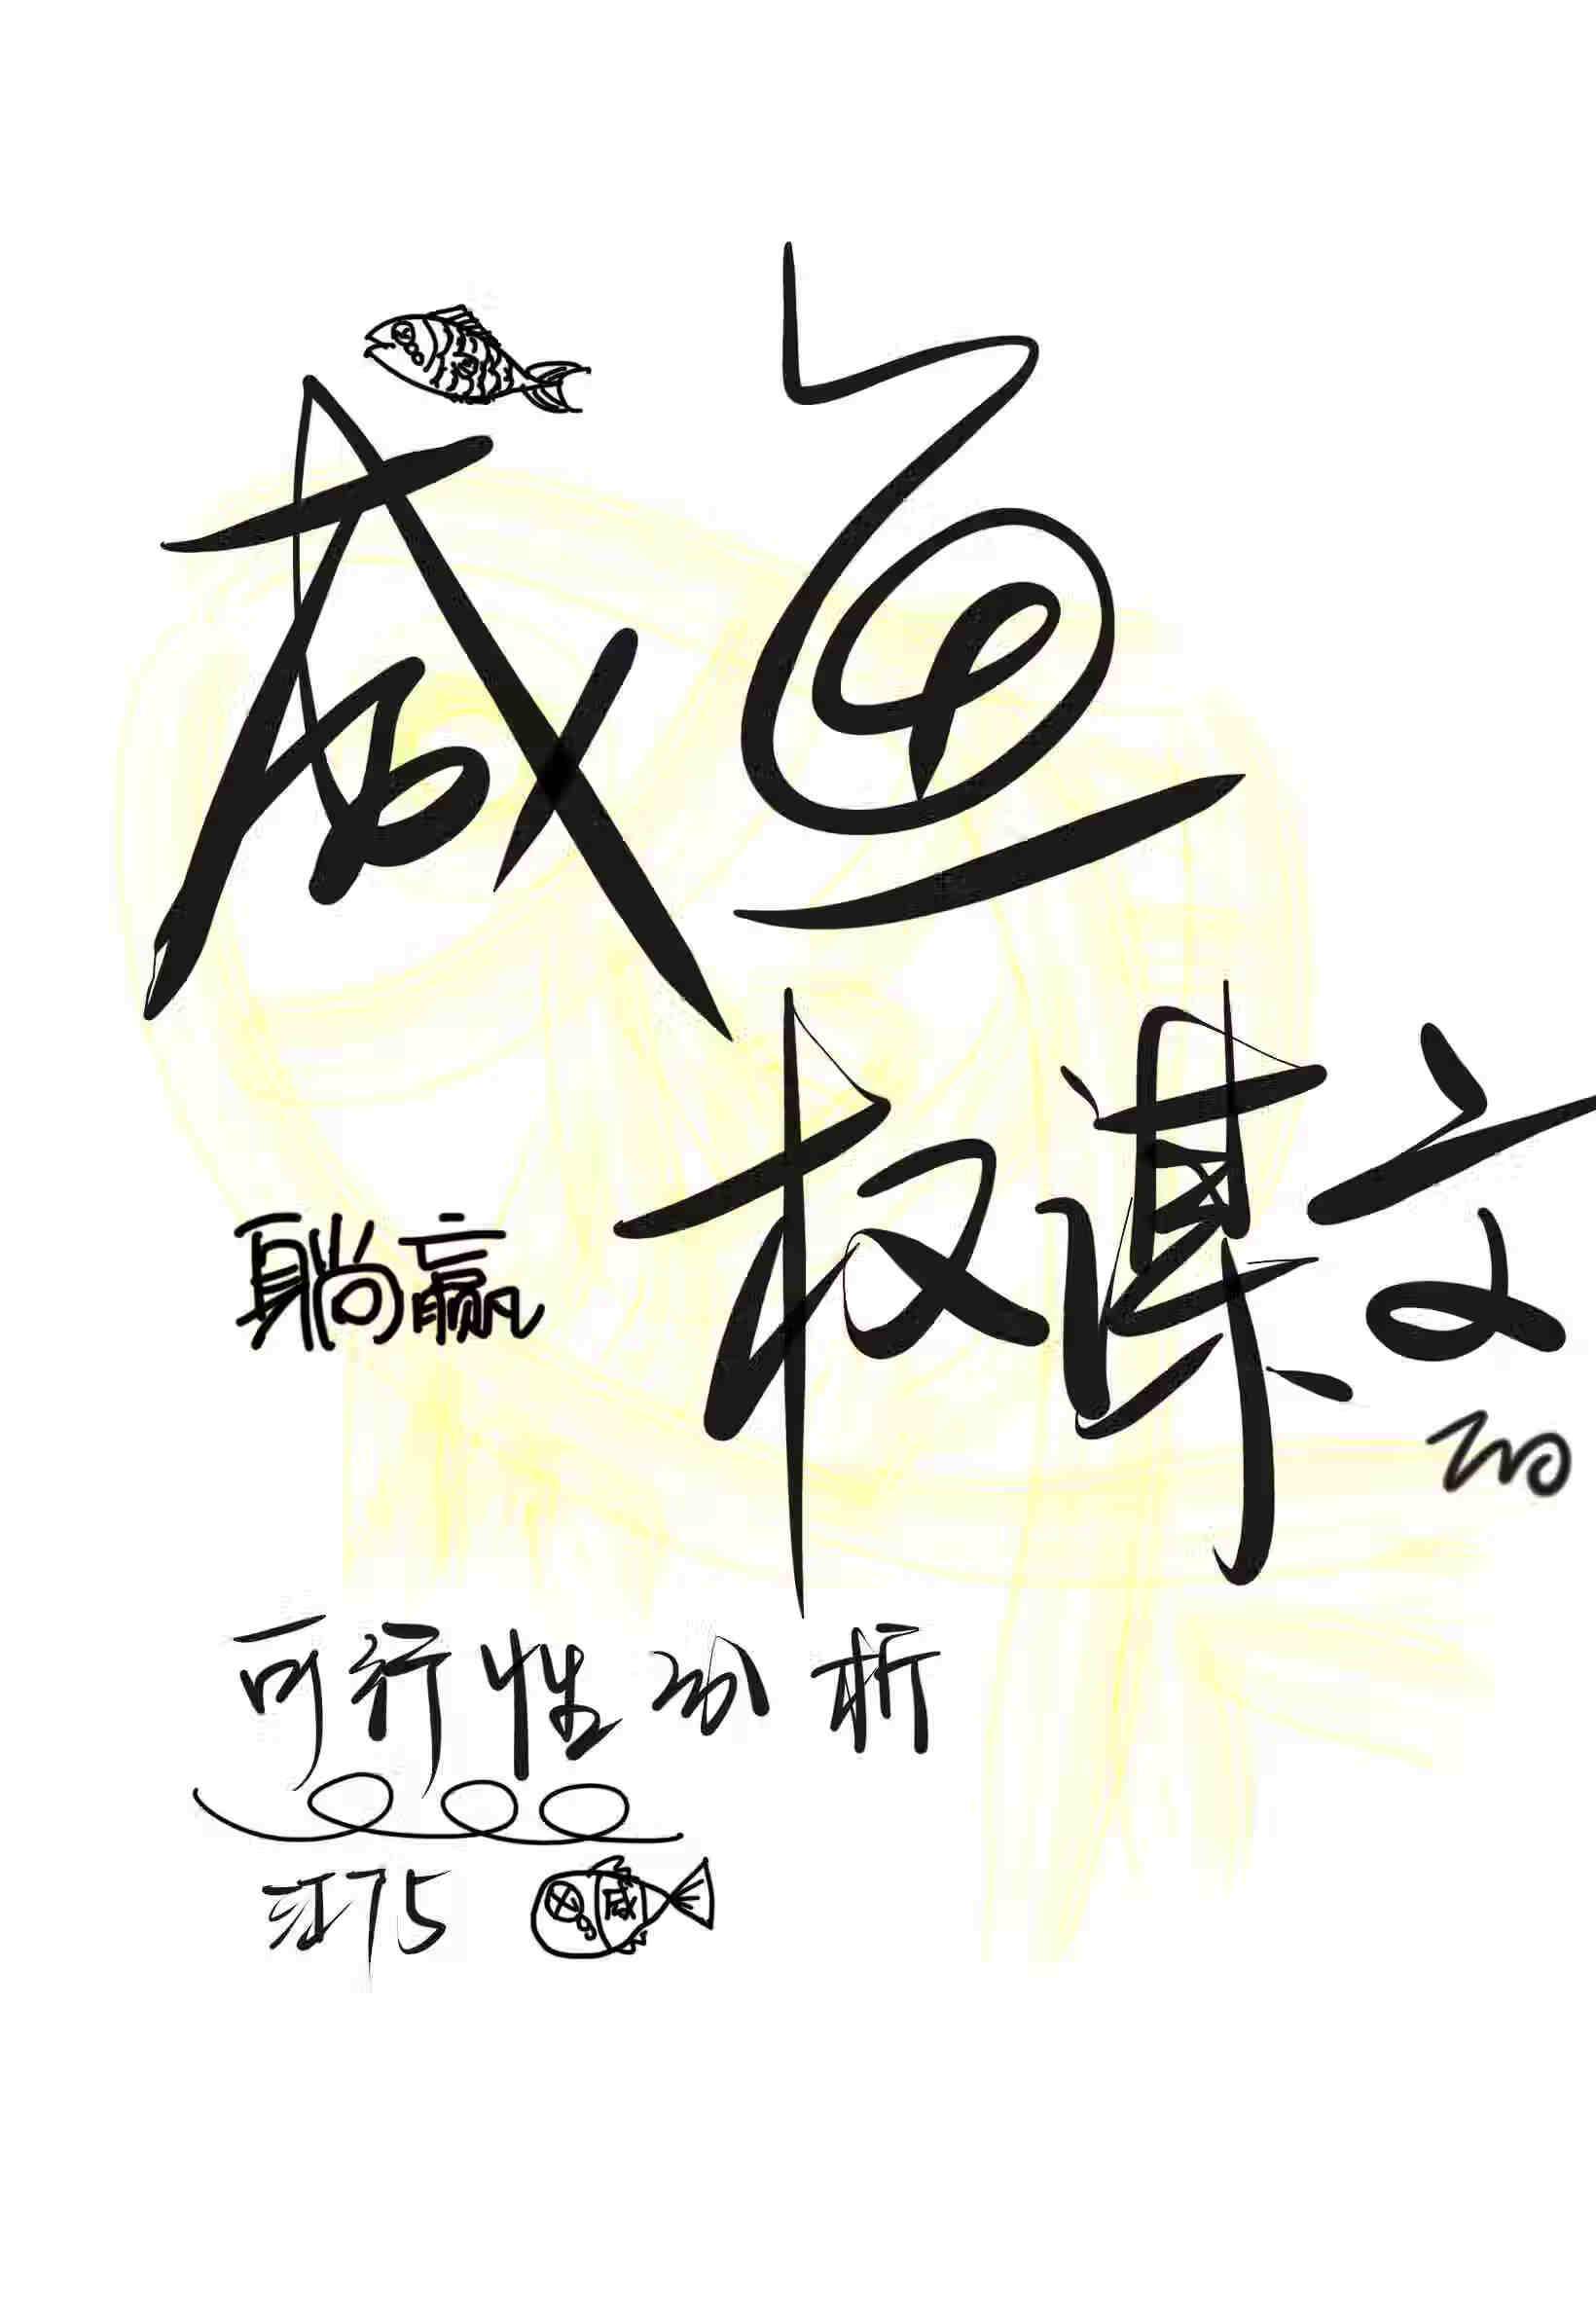 咸鱼
躺赢
权谋文
的
可行性分析
江75
咸